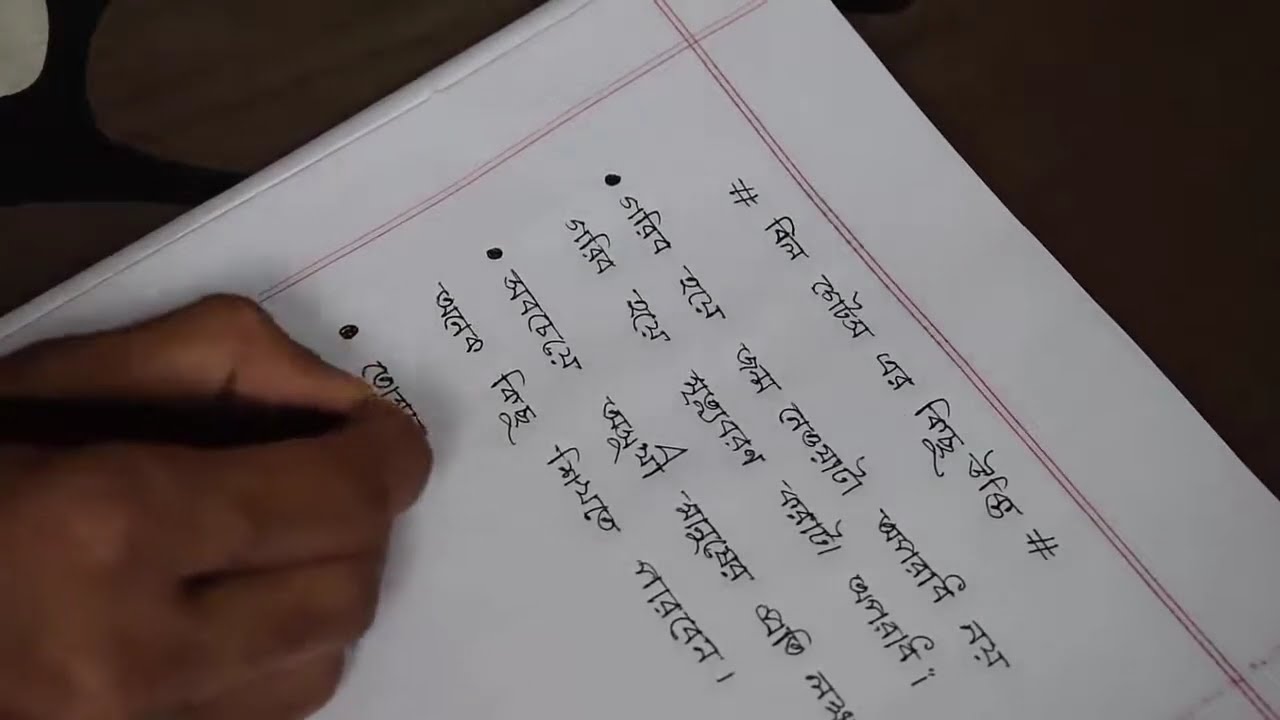 # বিল গেটস এর কিছু উক্তি #
• গরিব হয়ে জন্ম নেওয়াটা অপরাধ নয়
গরিব হয়ে মৃত্যুবরণ করাটা অপরাধ।
• সবচেয়ে অসুখী মানুষের প্রতি
অনেক কিছু শিখতে পারবেন।
•